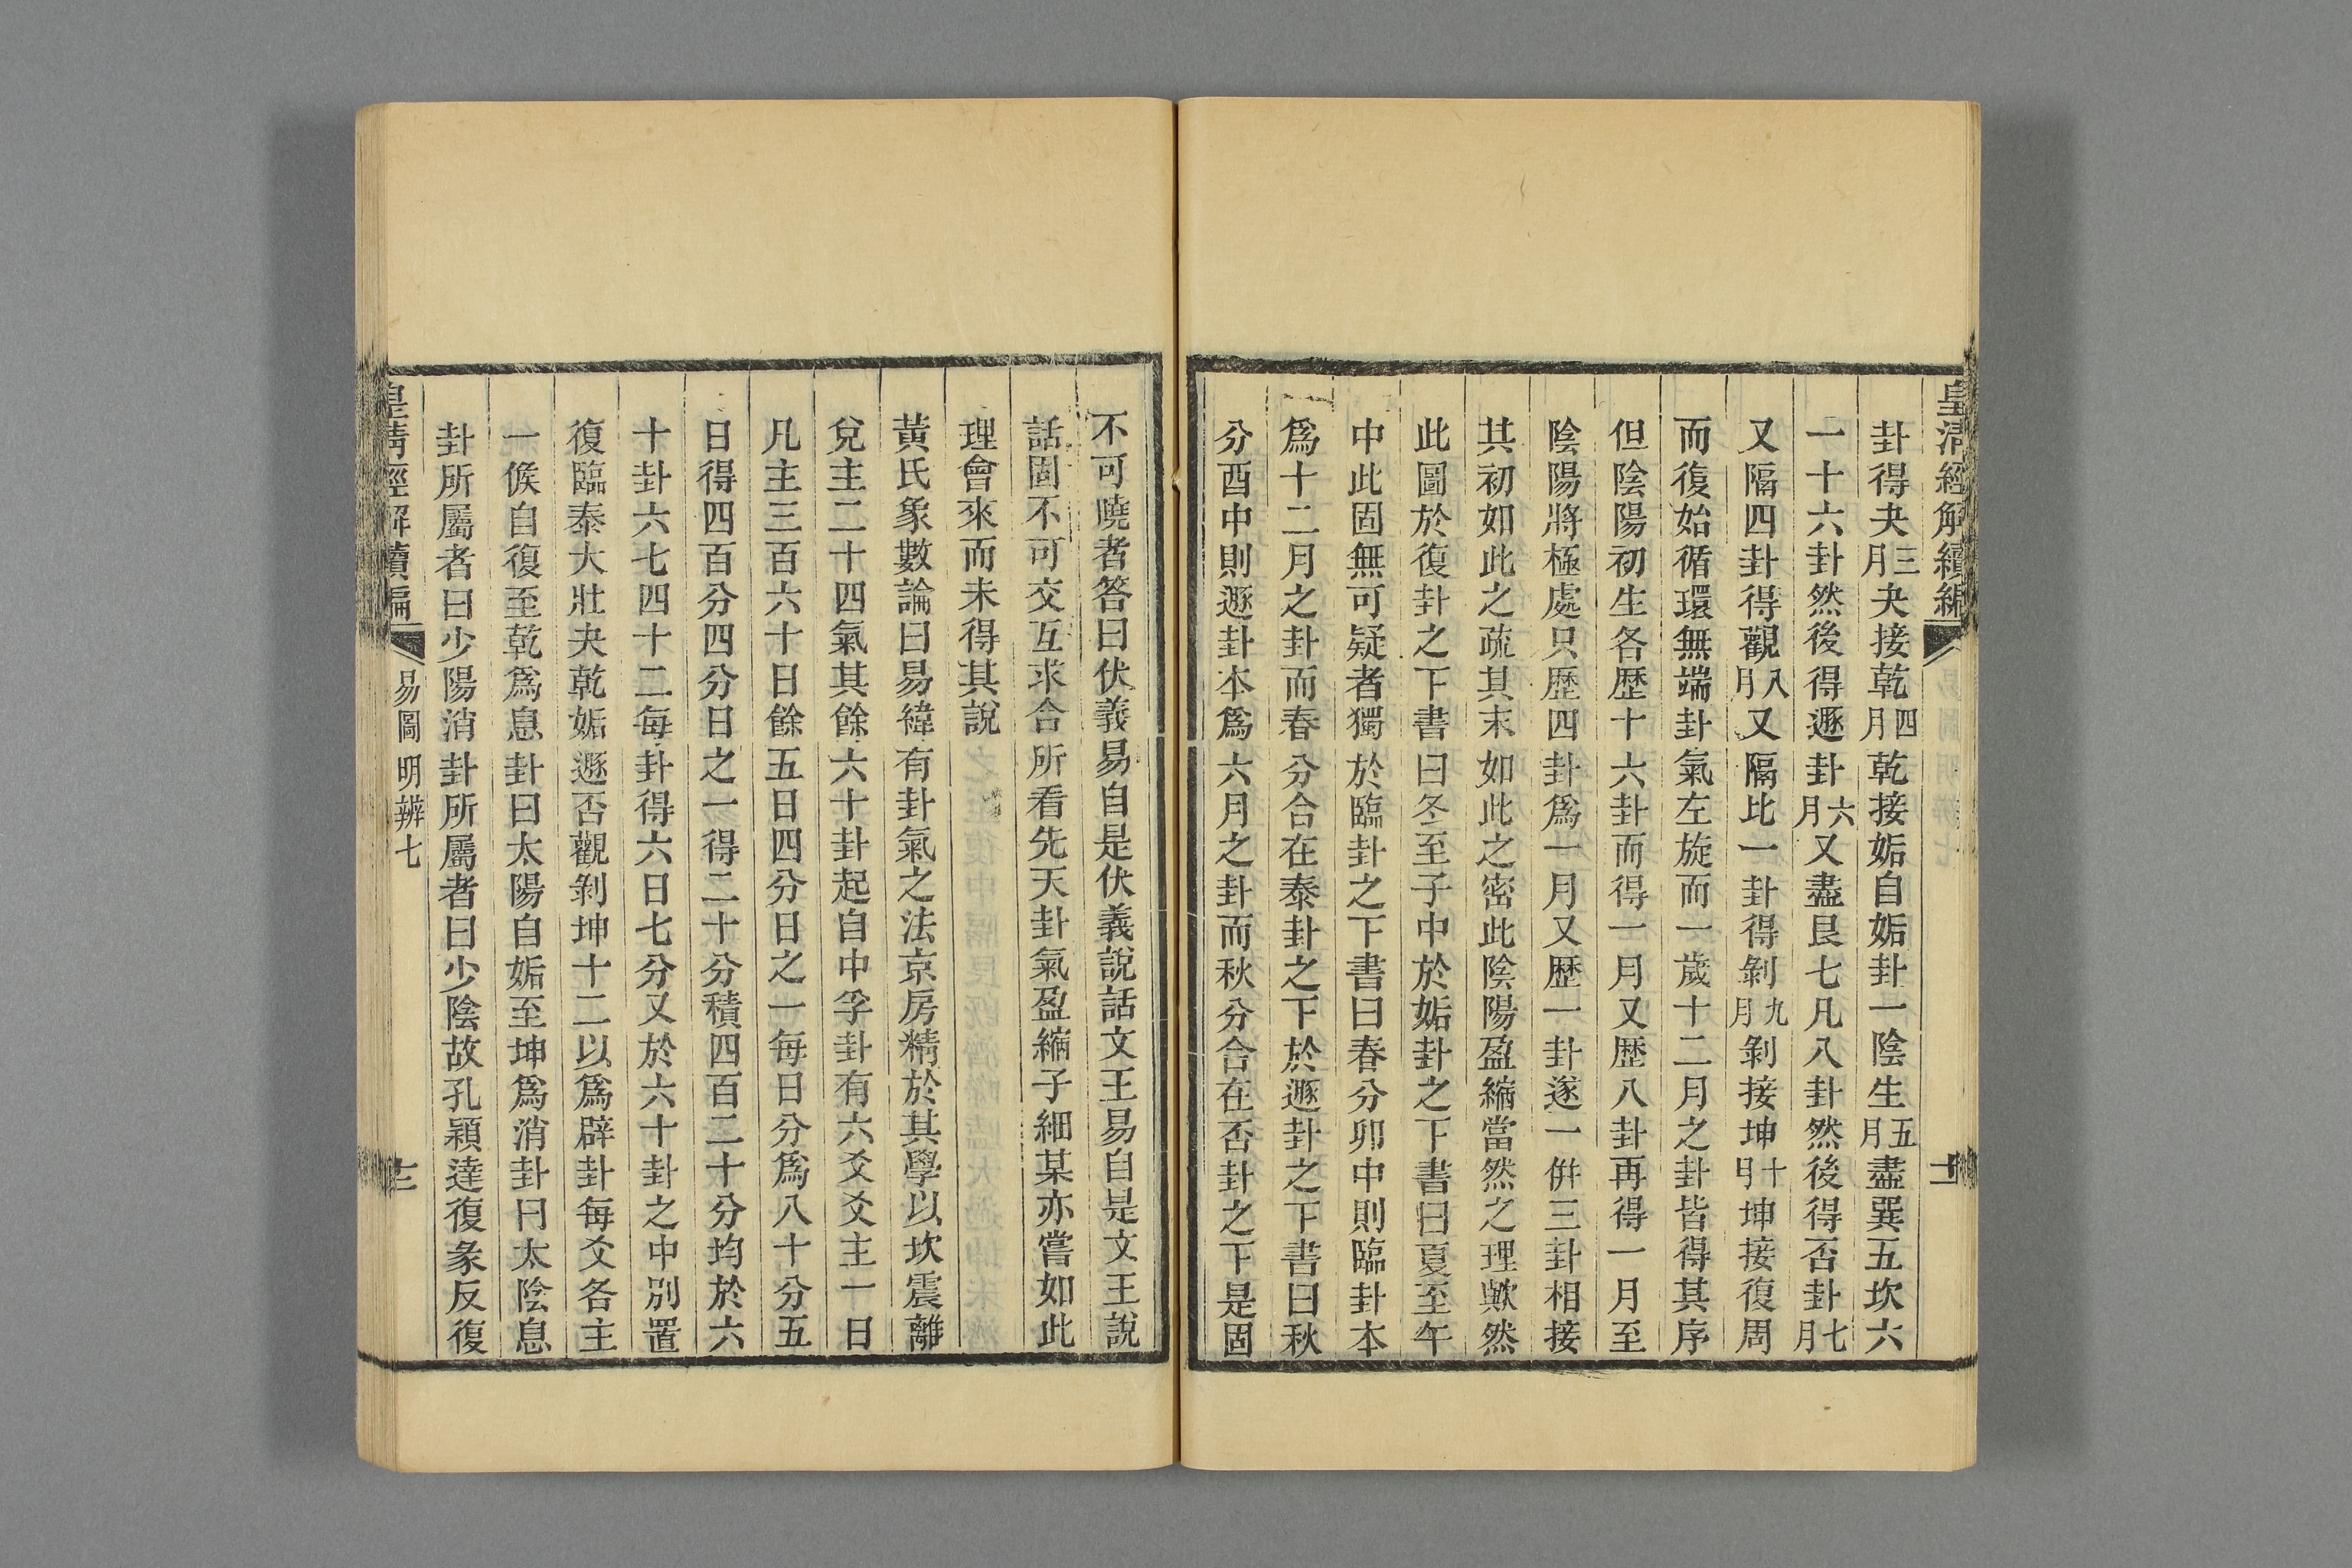 皇清經解續編
卦得夬三月夬接乾四月乾接姤自姤卦一陰生五月盡巽五坎六
一十六卦然後得遯卦六月又盡艮七凡八卦然後得否卦七月
又隔四卦得觀八月又隔比一卦得剝九月剝接坤十月坤接復周
而復始循環無端卦氣左旋而一歲十二月之卦皆得其序
但陰陽初生各歷十六卦而得一月又歷八卦再得一月至
陰陽將極處只歷四卦爲一月又歷一卦遂一併三卦相接
其初如此之疏其末如此之密此陰陽盈縮當然之理歟然
此圖於復卦之下書曰冬至子中於姤卦之下書曰夏至午
中此固無可疑者獨於臨卦之下書曰春分卯中則臨卦本
爲十二月之卦而春分合在泰卦之下於遯卦之下書曰秋
分酉中則遯卦本爲六月之卦而秋分合在否卦之下是固
不可曉者答曰伏羲易自是伏羲說話文王易自是文王說
話固不可交互求合所看先天卦氣盈縮子細某亦嘗如此
理會來而未得其說
黃氏象數論曰易緯有卦氣之法京房精於其學以坎震離
兌主二十四氣其餘六十卦起自中孚卦有六爻爻主一日
凡主三百六十日餘五日四分日之一每日分爲八十分五
日得四百分四分日之一得二十分積四百二十分均於六
十卦六七四十二每卦得六日七分又於六十卦之中別置
復臨泰大壯夬乾姤遯否觀剝坤十二以爲辟卦每爻各主
一候自復至乾爲息卦曰太陽自姤至坤爲消卦曰太陰息
卦所屬者曰少陽消卦所屬者曰少陰故孔穎達復彖反復
皇清經解續編
易圖明辨七